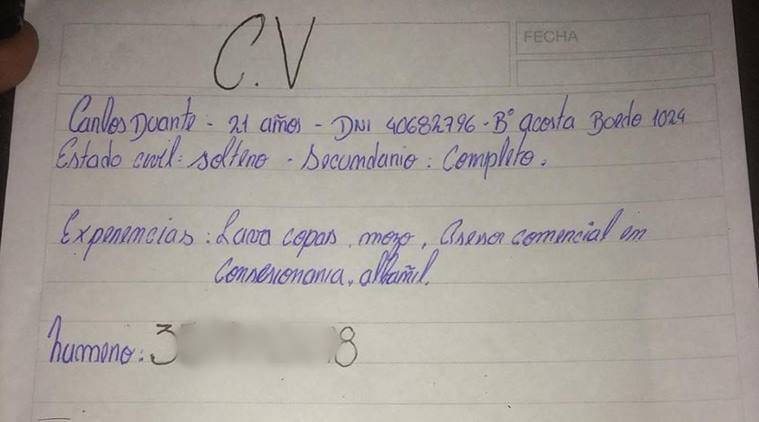 C.V
FECHA
Carlos Duarte - 21 años - DNI 40682796 - B° acosta Boedo 1024
Estado civil: soltero - Secundario: Completo.
Experiencias: Lava copas, mozo, asesor comercial en
Consesionaria, albañil.
numero: 3 8